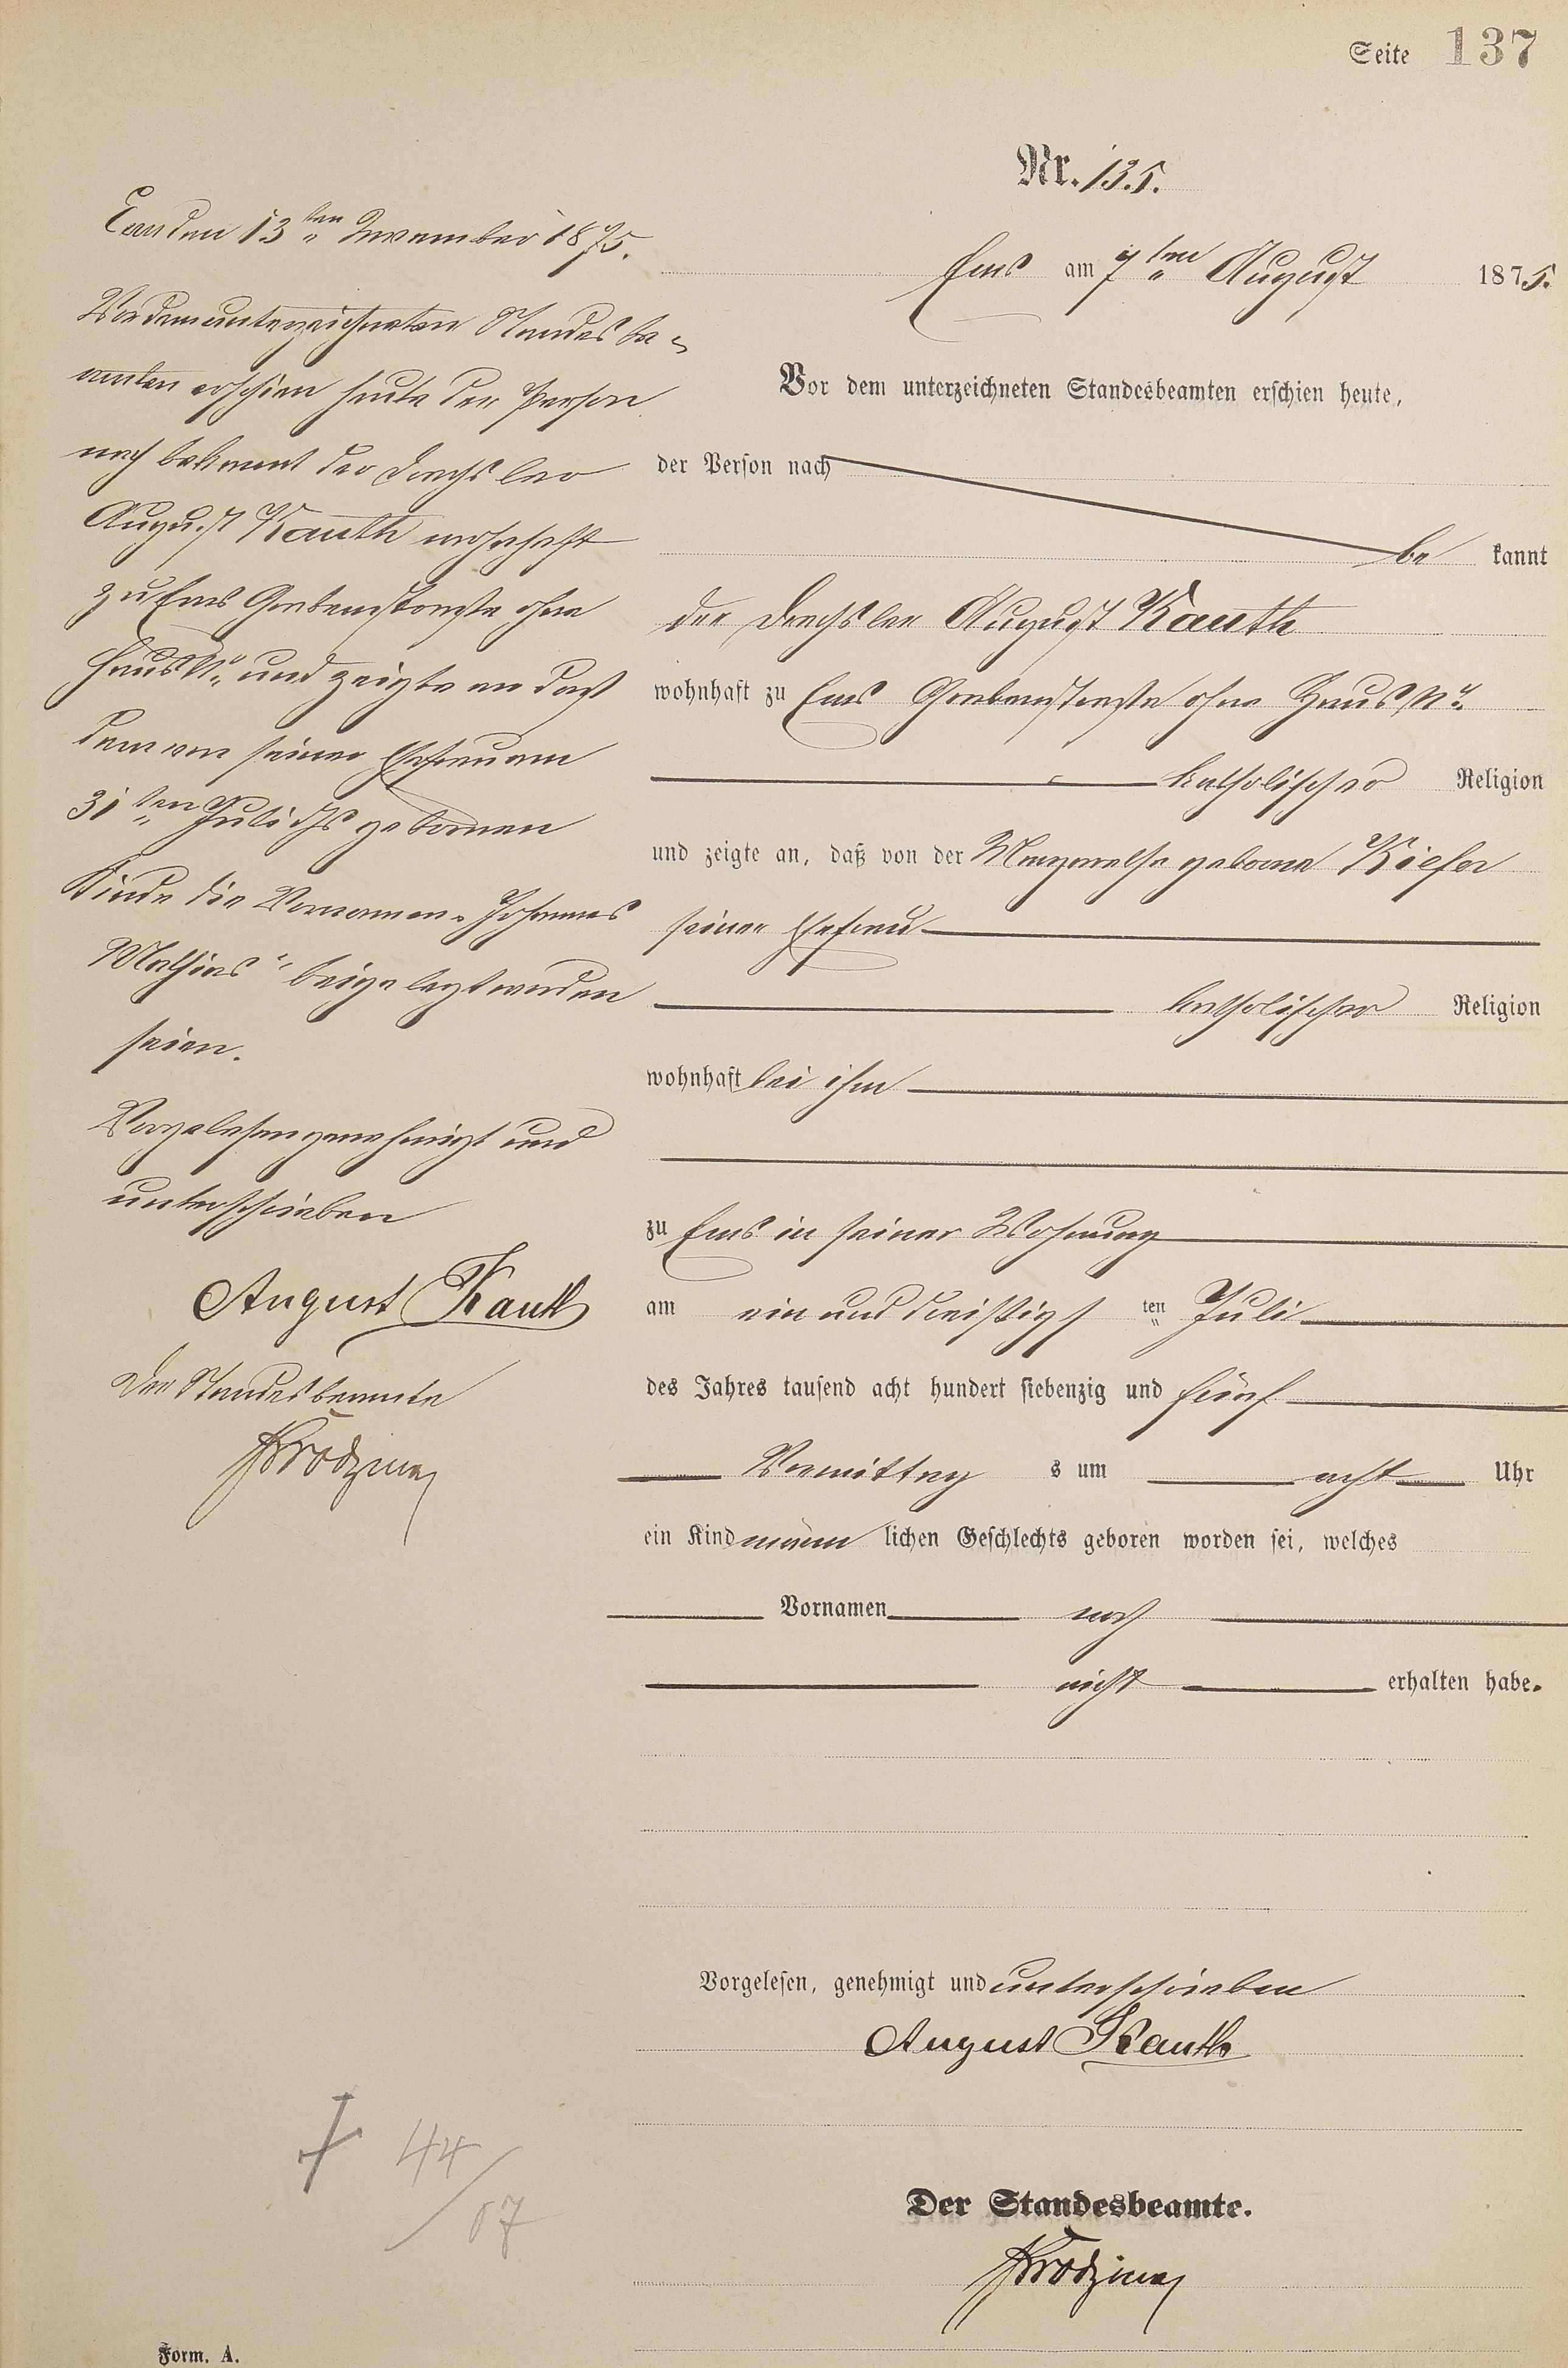 Seite 137
Nr. 135.
Ems am 7ten August 1875.
Vor dem unterzeichneten Standesbeamten erschien heute,
der Person nach
be kannt
der Drechsler August Kauth
wohnhaft zu Ems Grabenstraße ohne Haus No.
katholischer Religion
und zeigte an, daß von der Margarethe geborne Kiefer
seiner Ehefrau
katholischer Religion
wohnhaft bei ihm
zu Ems in seiner Wohnung
am ein und dreißigsten Juli
des Jahres tausend acht hundert siebenzig und fünf
Vormittags um acht Uhr
ein Kind männlichen Geschlechts geboren worden sei, welches
Vornamen noch
nicht erhalten habe.
Vorgelesen, genehmigt und unterschrieben
August Kauth
Der Standesbeamte.
Ems den 13ten November 1875.
Vor dem unterzeichneten Standesbe-
amten erschien heute der Person
nach bekannt der Drechsler
August Kauth wohnhaft
zu Ems Grabenstraße ohne
Haus No. und zeigte an daß
dem von seiner Ehefrau am
31ten Juli ds geborenen
Kinde die Vornamen „Johannes
Mathias" beigelegt worden
seien.
Vorgelesen genehmigt und
unterschrieben
August Kauth
Der Standesbeamte
† 44/07
Form. A.